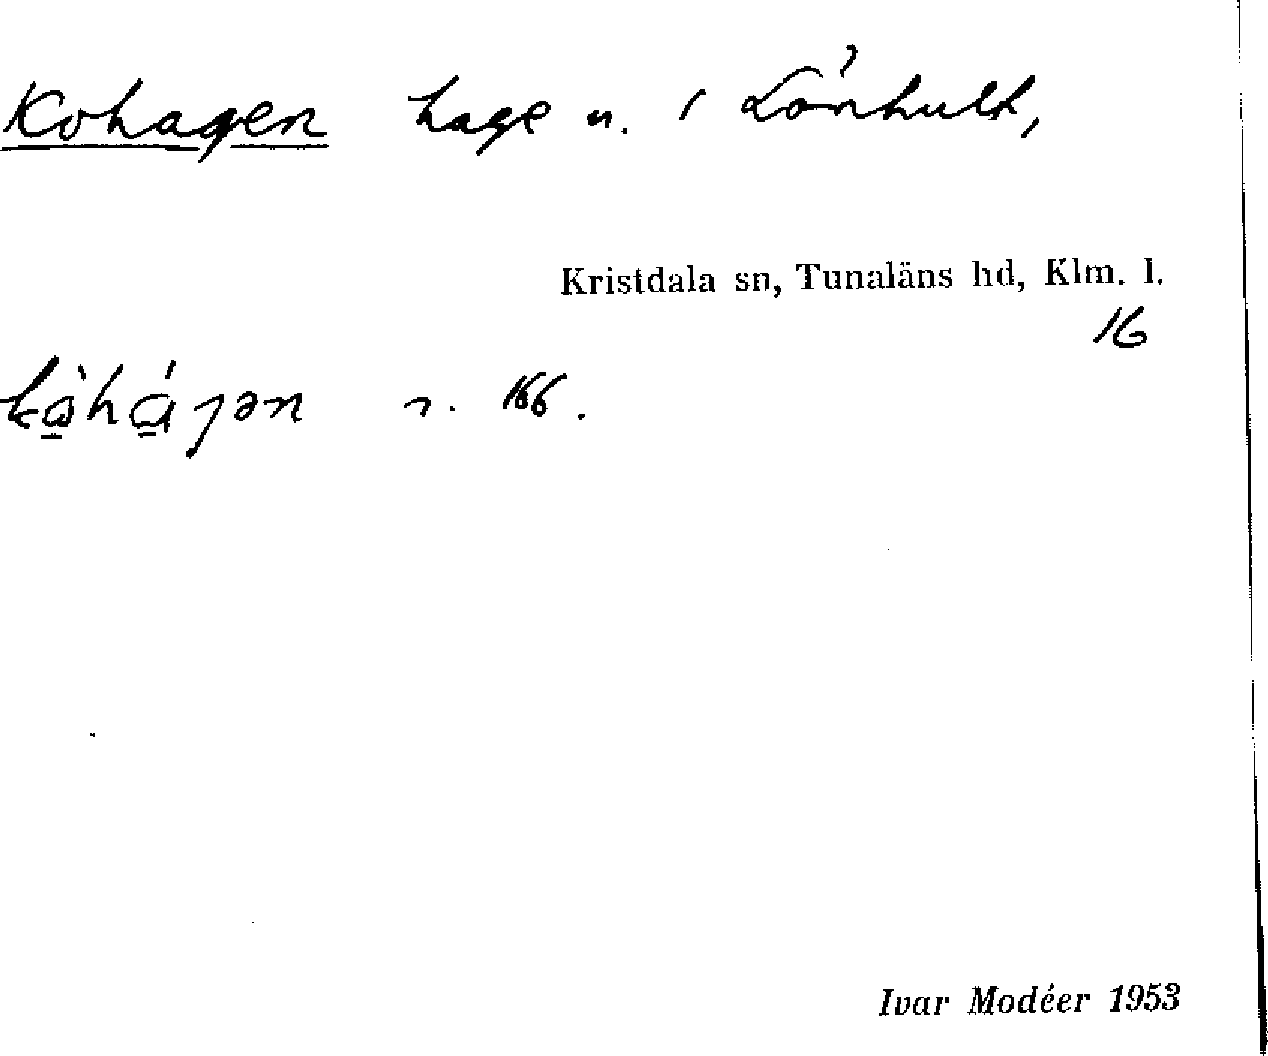 Kohagen hage n. i Lönhult,
Kristdala sn, Tunaläns hd, Klm. l.
16
kòháɡən n. 166.
Ivar Modéer 1953